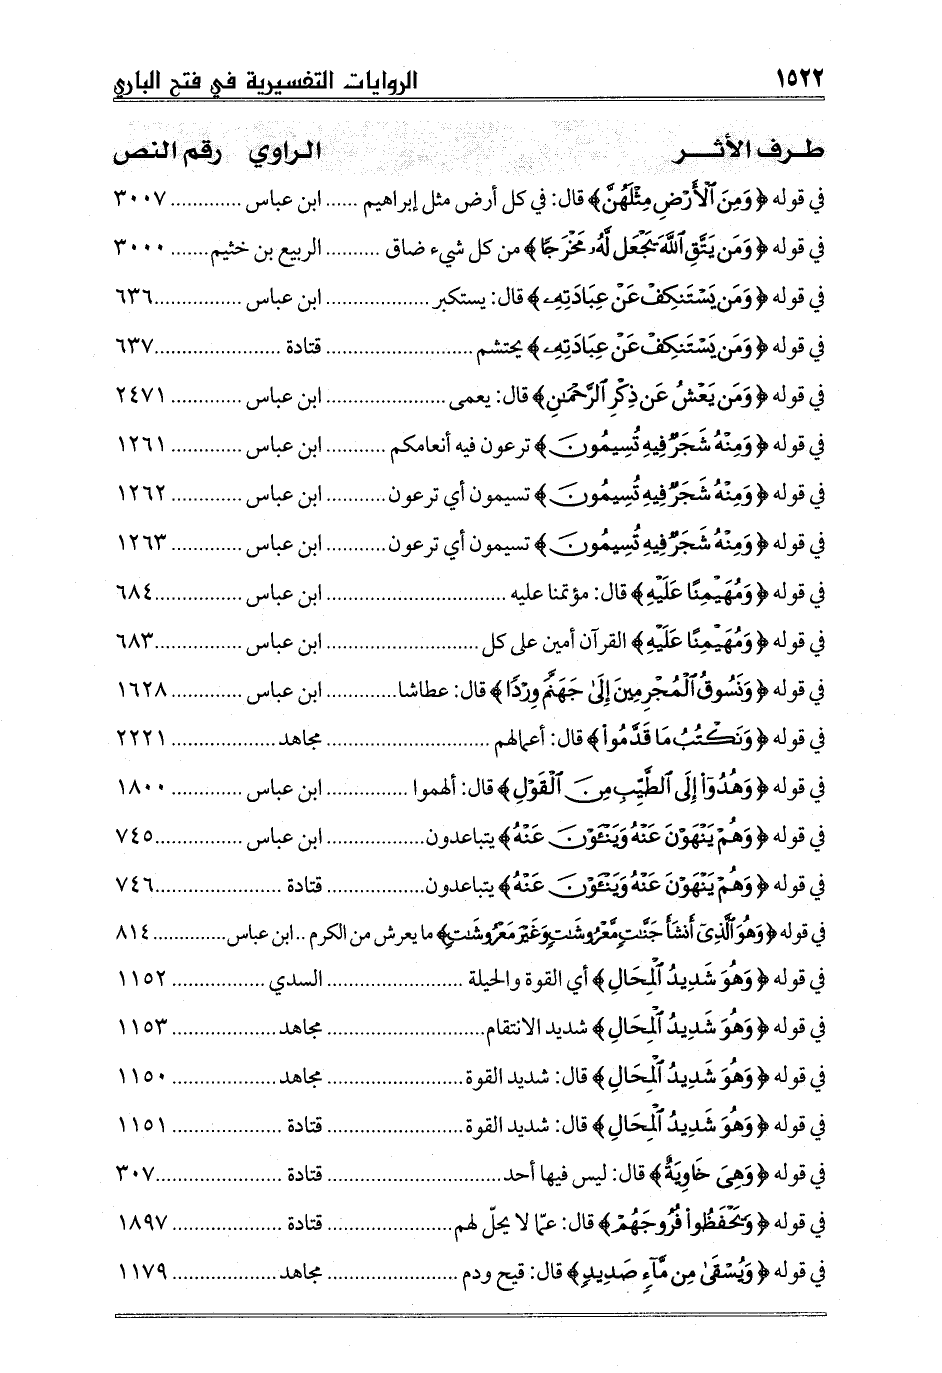 ١٥٢٢ الروايات التفسيرية في فتح الباري
طرف الأثر الراوي رقم النص
في قوله ﴿وَمِنَ ٱلْأَرْضِ مِثْلَهُنَّ﴾ قال: في كل أرض مثل إبراهيم ...... ابن عباس ............. ٣٠٠٧
في قوله ﴿وَمَن يَتَّقِ ٱللَّهَ يَجْعَل لَّهُۥ مَخْرَجًا﴾ من كل شيء ضاق .......... الربيع بن خثيم....... ٣٠٠٠
في قوله ﴿وَمَن يَسْتَنكِفْ عَنْ عِبَادَتِهِۦ﴾ قال: يستكبر ................... ابن عباس ................ ٦٣٦
في قوله ﴿وَمَن يَسْتَنكِفْ عَنْ عِبَادَتِهِۦ﴾ يحتشم ........................... قتادة ....................... ٦٣٧
في قوله ﴿وَمَن يَعْشُ عَن ذِكْرِ ٱلرَّحْمَٰنِ﴾ قال: يعمى ...................... ابن عباس ............. ٢٤٧١
في قوله ﴿وَمِنْهُ شَجَرٌ فِيهِ تُسِيمُونَ﴾ ترعون فيه أنعامكم ........... ابن عباس ............. ١٢٦١
في قوله ﴿وَمِنْهُ شَجَرٌ فِيهِ تُسِيمُونَ﴾ تسيمون أي ترعون........... ابن عباس ............. ١٢٦٢
في قوله ﴿وَمِنْهُ شَجَرٌ فِيهِ تُسِيمُونَ﴾ تسيمون أي ترعون........... ابن عباس ............. ١٢٦٣
في قوله ﴿وَمُهَيْمِنًا عَلَيْهِ﴾ قال: مؤتمنا عليه ................................. ابن عباس ................ ٦٨٤
في قوله ﴿وَمُهَيْمِنًا عَلَيْهِ﴾ القرآن أمين على كل ............................ ابن عباس ................ ٦٨٣
في قوله ﴿وَنَسُوقُ ٱلْمُجْرِمِينَ إِلَىٰ جَهَنَّمَ وِرْدًا﴾ قال: عطاشا............. ابن عباس ............. ١٦٢٨
في قوله ﴿وَنَكْتُبُ مَا قَدَّمُوا۟﴾ قال: أعمالهم .............................. مجاهد ................... ٢٢٢١
في قوله ﴿وَهُدُوٓا۟ إِلَى ٱلطَّيِّبِ مِنَ ٱلْقَوْلِ﴾ قال: ألهموا ............... ابن عباس ............. ١٨٠٠
في قوله ﴿وَهُمْ يَنْهَوْنَ عَنْهُ وَيَنْـَٔوْنَ عَنْهُ﴾ يتباعدون.................. ابن عباس ................ ٧٤٥
في قوله ﴿وَهُمْ يَنْهَوْنَ عَنْهُ وَيَنْـَٔوْنَ عَنْهُ﴾ يتباعدون.................. قتادة ....................... ٧٤٦
في قوله ﴿وَهُوَ ٱلَّذِىٓ أَنشَأَ جَنَّٰتٍ مَّعْرُوشَٰتٍ وَغَيْرَ مَعْرُوشَٰتٍ﴾ ما يعرش من الكرم .. ابن عباس ............. ٨١٤
في قوله ﴿وَهُوَ شَدِيدُ ٱلْمِحَالِ﴾ أي القوة والحيلة ......................... السدي ................. ١١٥٢
في قوله ﴿وَهُوَ شَدِيدُ ٱلْمِحَالِ﴾ شديد الانتقام............................. مجاهد ................... ١١٥٣
في قوله ﴿وَهُوَ شَدِيدُ ٱلْمِحَالِ﴾ قال: شديد القوة......................... مجاهد ................... ١١٥٠
في قوله ﴿وَهُوَ شَدِيدُ ٱلْمِحَالِ﴾ قال: شديد القوة......................... قتادة .................... ١١٥١
في قوله ﴿وَهِىَ خَاوِيَةٌ﴾ قال: ليس فيها أحد................................ قتادة ....................... ٣٠٧
في قوله ﴿وَيَحْفَظُوا۟ فُرُوجَهُمْ﴾ قال: عمّا لا يحلّ لهم....................... قتادة .................... ١٨٩٧
في قوله ﴿وَيُسْقَىٰ مِن مَّآءٍ صَدِيدٍ﴾ قال: قيح ودم ........................ مجاهد ................... ١١٧٩